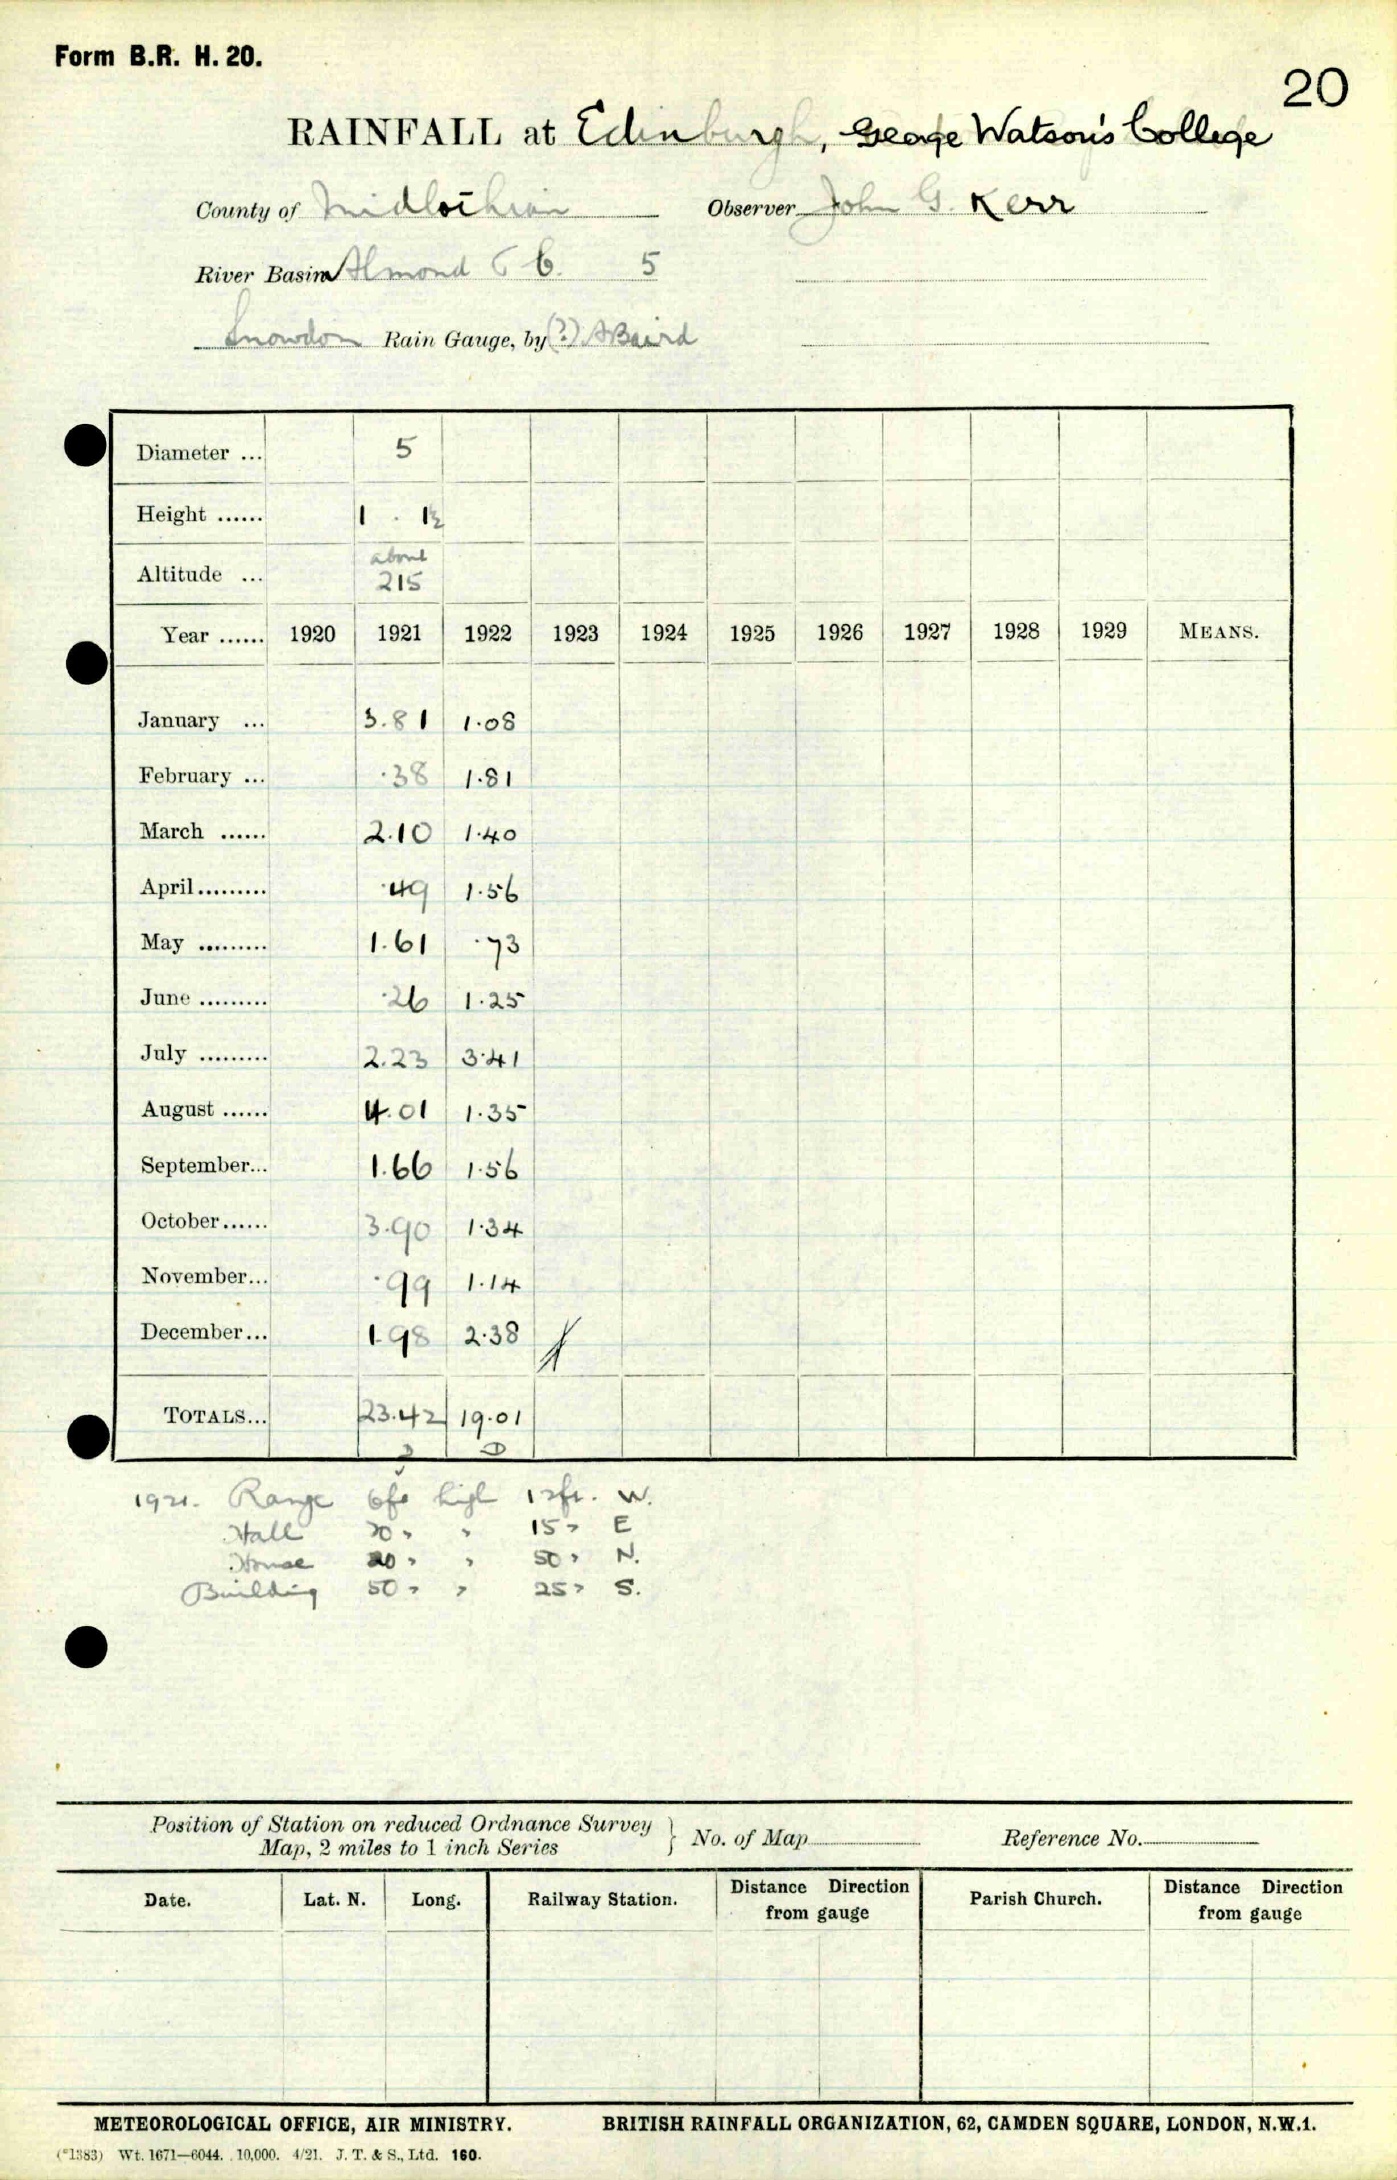 Form B.R. H. 20.
20
RAINFALL at Edinburgh, George Watson's College
County of Midlothian Observer John G. Kerr
River Basin Almond 5
Snowdon Rain Gauge, by (?) A Baird
Diameter ... 5
Height ...... 1 . 1½
Altitude ... about 215
Year ...... 1920 1921 1922 1923 1924 1925 1926 1927 1928 1929 MEANS.
January ... 3.81 1.08
February ... .38 1.81
March ...... 2.10 1.40
April......... .49 1.56
May ......... 1.61 .73
June ......... .26 1.25
July ......... 2.23 3.41
August ...... 4.01 1.35
September... 1.66 1.56
October...... 3.90 1.34
November... .99 1.14
December... 1.98 2.38
TOTALS... 23.42 19.01
1921. Range 6ft high 12ft. W.
Hall 20 " " 15 " E
House 20 " " 50 " N.
Building 50 " " 25 " S.
Position of Station on reduced Ordnance Survey
Map, 2 miles to 1 inch Series } No. of Map Reference No.
Date. Lat. N. Long. Railway Station. Distance Direction from gauge Parish Church. Distance Direction from gauge
METEOROLOGICAL OFFICE, AIR MINISTRY. BRITISH RAINFALL ORGANIZATION, 62, CAMDEN SQUARE, LONDON, N.W.1.
(*1383) Wt. 1671—6044. 10,000. 4/21. J. T. & S., Ltd. 160.